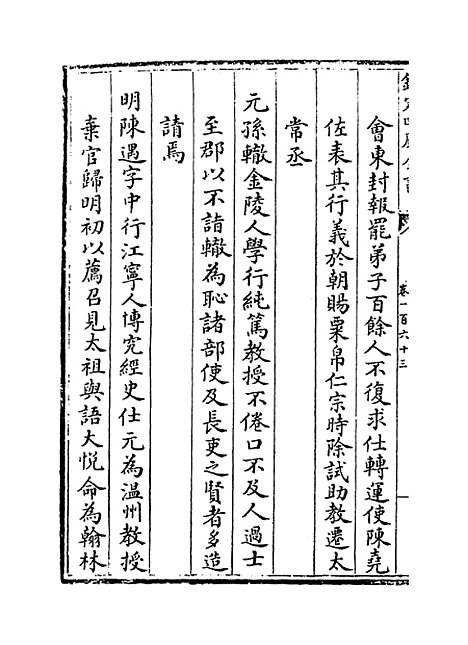 欽定四庫全書
卷一百六十三
會東封報罷弟子百餘人不復求仕轉運使陳堯
佐表其行義於朝賜粟帛仁宗時除試助教遷太
常丞
元孫轍金陵人學行純篤教授不倦口不及人過士
至郡以不詣轍為恥諸部使及長吏之賢者多造
請焉
明陳遇字中行江寧人博究經史仕元為温州教授
棄官歸明初以薦召見太祖與語大悦命為翰林